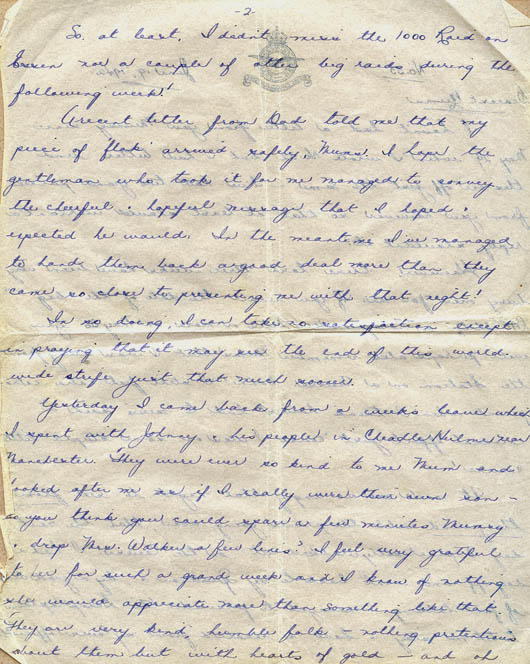 -2-
So, at least, I didn't miss the 1000 Raid on
Essen nor a couple of other big raids during the
following week!
A recent letter from Dad told me that my
piece of flak arrived safely, Mums. I hope the
gentleman who took it for me managed to convey
the cheerful & hopeful message that I hoped &
expected he would. In the meantime I've managed
to hand them back a good deal more than they
came so close to presenting me with that night!
In so doing, I can take no satisfaction except
in praying that it may see the end of this world-
wide strife just that much sooner.
Yesterday I came back from a week's leave which
I spent with Johnny & his people in Cheadle Hulme near
Manchester. They were ever so kind to me Mum and
looked after me as if I really were their own son -
do you think you could spare a few minutes Mumsy
& drop Mrs. Walker a few lines? I feel very grateful
to her for such a grand week and I know of nothing
she would appreciate more than something like that.
They are very kind, humble folk - nothing pretentious
about them but with hearts of gold - and oh